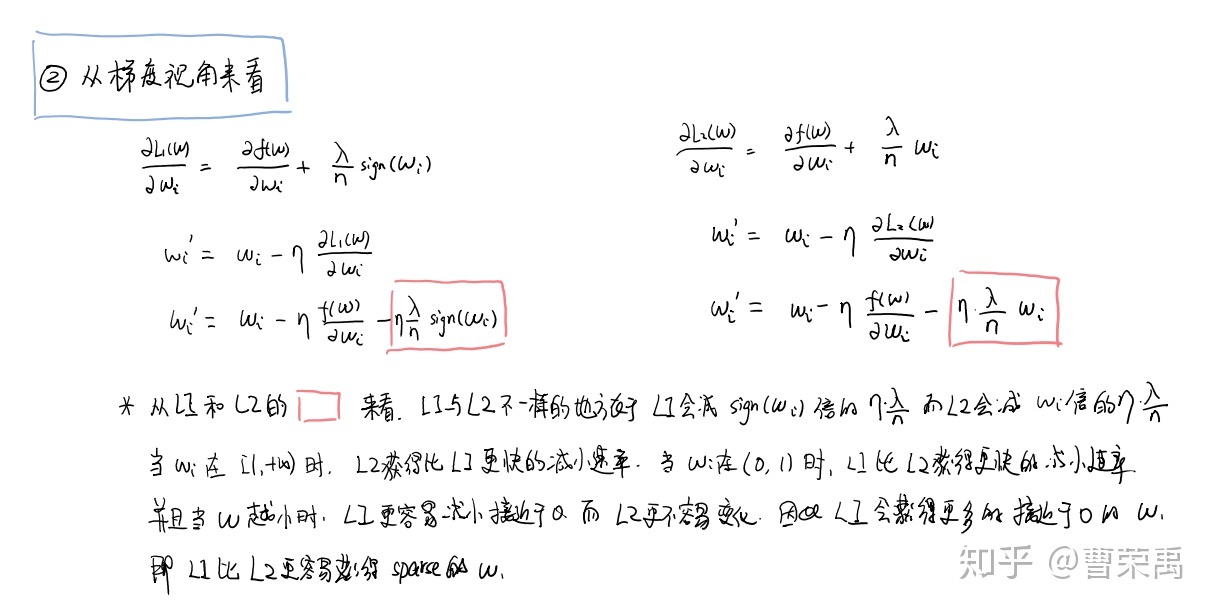 ② 从梯度视角来看
∂L₁(w)/∂wᵢ = ∂f(w)/∂wᵢ + λ/n sign(wᵢ)
wᵢ' = wᵢ - η ∂L₁(w)/∂wᵢ
wᵢ' = wᵢ - η f(w)/∂wᵢ - η λ/n sign(wᵢ)
∂L₂(w)/∂wᵢ = ∂f(w)/∂wᵢ + λ/n wᵢ
wᵢ' = wᵢ - η ∂L₂(w)/∂wᵢ
wᵢ' = wᵢ - η f(w)/∂wᵢ - η·λ/n wᵢ
* 从L1和L2的 来看. L1与L2不一样的地方在于 L1会减 sign(wᵢ) 倍的 η·λ/n 而L2会减 wᵢ倍的η·λ/n
当 wᵢ 在 [1,+∞) 时, L2获得比L1更快的减小速率. 当 wᵢ在(0,1)时, L1比L2获得更快的减小速率.
并且当 w 越小时, L1更容易减小接近于0 而 L2更不容易变化. 因此 L1会获得更多的接近于0的 w.
即 L1比L2更容易获得 sparse的 w.
知乎 @曹荣禹